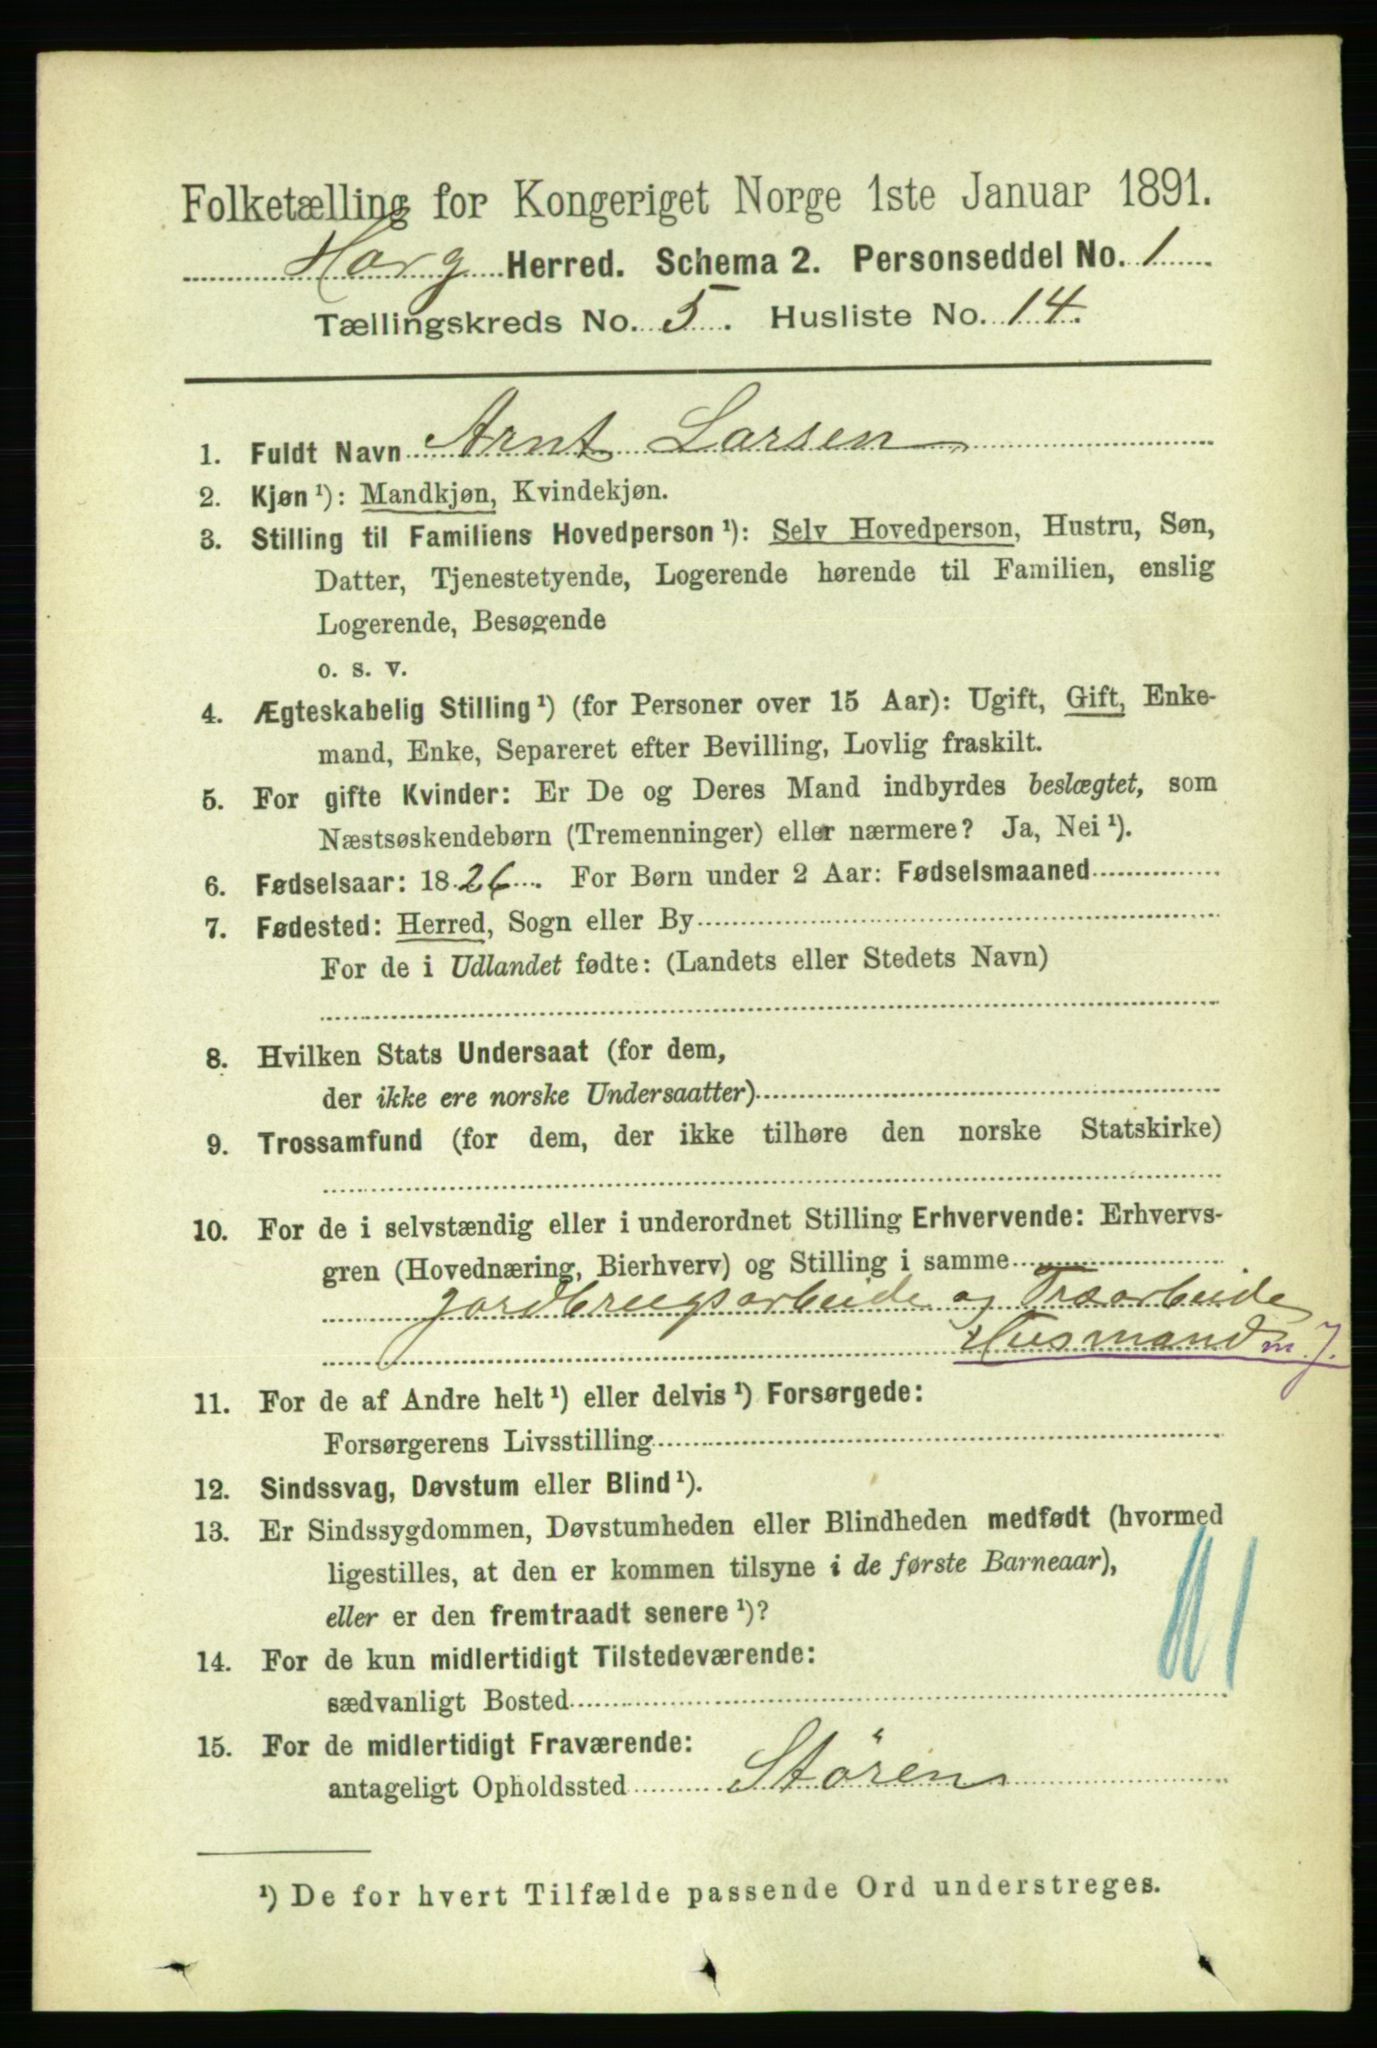 Folketælling for Kongeriget Norge 1ste Januar 1891.
Horg Herred. Schema 2. Personseddel No. 1
Tællingskreds No. 5. Husliste No. 14.
1. Fuldt Navn Arnt Larsen
2. Kjøn ¹): Mandkjøn, Kvindekjøn.
3. Stilling til Familiens Hovedperson ¹): Selv Hovedperson, Hustru, Søn,
Datter, Tjenestetyende, Logerende hørende til Familien, enslig
Logerende, Besøgende
o. s. v.
4. Ægteskabelig Stilling ¹) (for Personer over 15 Aar): Ugift, Gift, Enke-
mand, Enke, Separeret efter Bevilling, Lovlig fraskilt.
5. For gifte Kvinder: Er De og Deres Mand indbyrdes beslægtet, som
Næstsøskendebørn (Tremenninger) eller nærmere? Ja, Nei ¹).
6. Fødselsaar: 1826. For Børn under 2 Aar: Fødselsmaaned
7. Fødested: Herred, Sogn eller By
For de i Udlandet fødte: (Landets eller Stedets Navn)
8. Hvilken Stats Undersaat (for dem,
der ikke ere norske Undersaatter)
9. Trossamfund (for dem, der ikke tilhøre den norske Statskirke)
10. For de i selvstændig eller i underordnet Stilling Erhvervende: Erhvervs-
gren (Hovednæring, Bierhverv) og Stilling i samme
Jordbrugsarbeide og Træarbeide
Husmand m. J.
11. For de af Andre helt ¹) eller delvis ¹) Forsørgede:
Forsørgerens Livsstilling
12. Sindssvag, Døvstum eller Blind ¹).
13. Er Sindssygdommen, Døvstumheden eller Blindheden medfødt (hvormed
ligestilles, at den er kommen tilsyne i de første Barneaar),
eller er den fremtraadt senere ¹)?
14. For de kun midlertidigt Tilstedeværende:
sædvanligt Bosted
15. For de midlertidigt Fraværende:
antageligt Opholdssted Stören
¹) De for hvert Tilfælde passende Ord understreges.